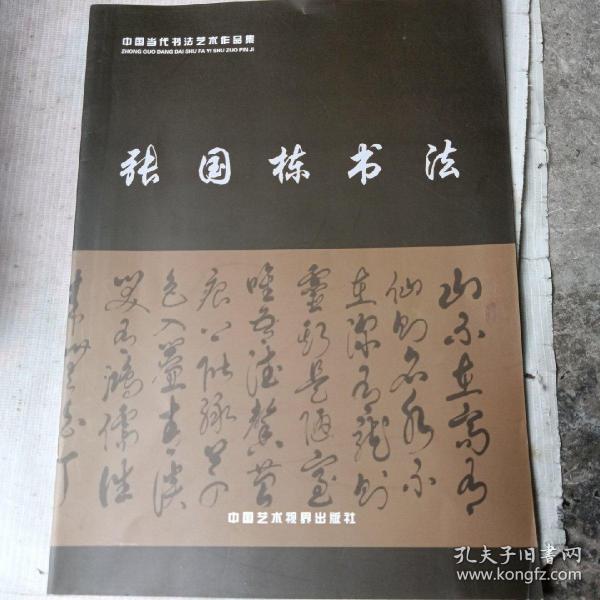 中国当代书法艺术作品集
ZHONG GUO DANG DAI SHU FA YI SHU ZUO PIN JI
张国栋书法
山不在高有
仙则名水不
在深有龙则
灵斯是陋室
唯吾德馨苔
痕上阶绿草
色入帘青谈
笑有鸿儒往
来无白丁
中国艺术视界出版社
孔夫子旧书网
www.kongfz.com